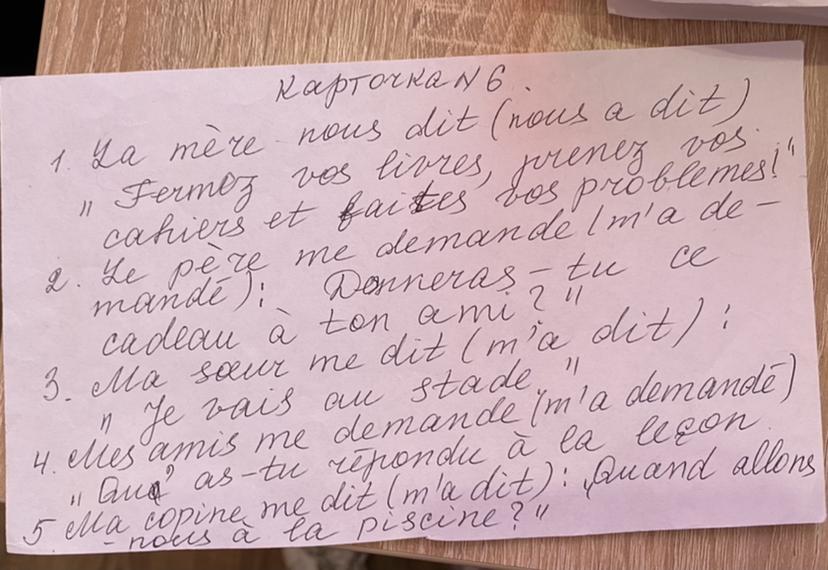 Карточка N 6.
1. La mère nous dit (nous a dit)
"Fermez vos livres, prenez vos
cahiers et faites vos problèmes!"
2. Le père me demande (m'a de-
mandé): Donneras-tu ce
cadeau à ton ami?"
3. Ma sœur me dit (m'a dit):
"Je vais au stade."
4. Mes amis me demande (m'a demandé)
as-tu répondu à la leçon
5. Ma copine me dit (m'a dit): „Quand allons
-nous à la piscine?"